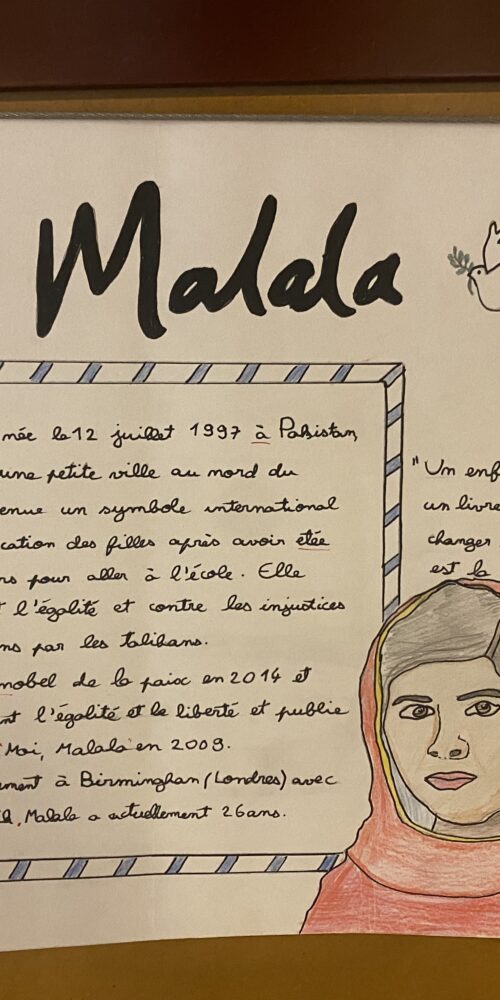 Malala
née le 12 juillet 1997 à Pakistan,
une petite ville au nord du
enue un symbole international
cation des filles après avoir étée
rs pour aller à l'école. Elle
t l'égalité et contre les injustices
ns par les talibans.
nobel de la paix en 2014 et
nt l'égalité et la liberté et publie
Moi, Malala en 2009.
ement à Birminghan (Londres) avec
Malala a actuellement 26 ans.
"Un enf
un livre
changer
est la